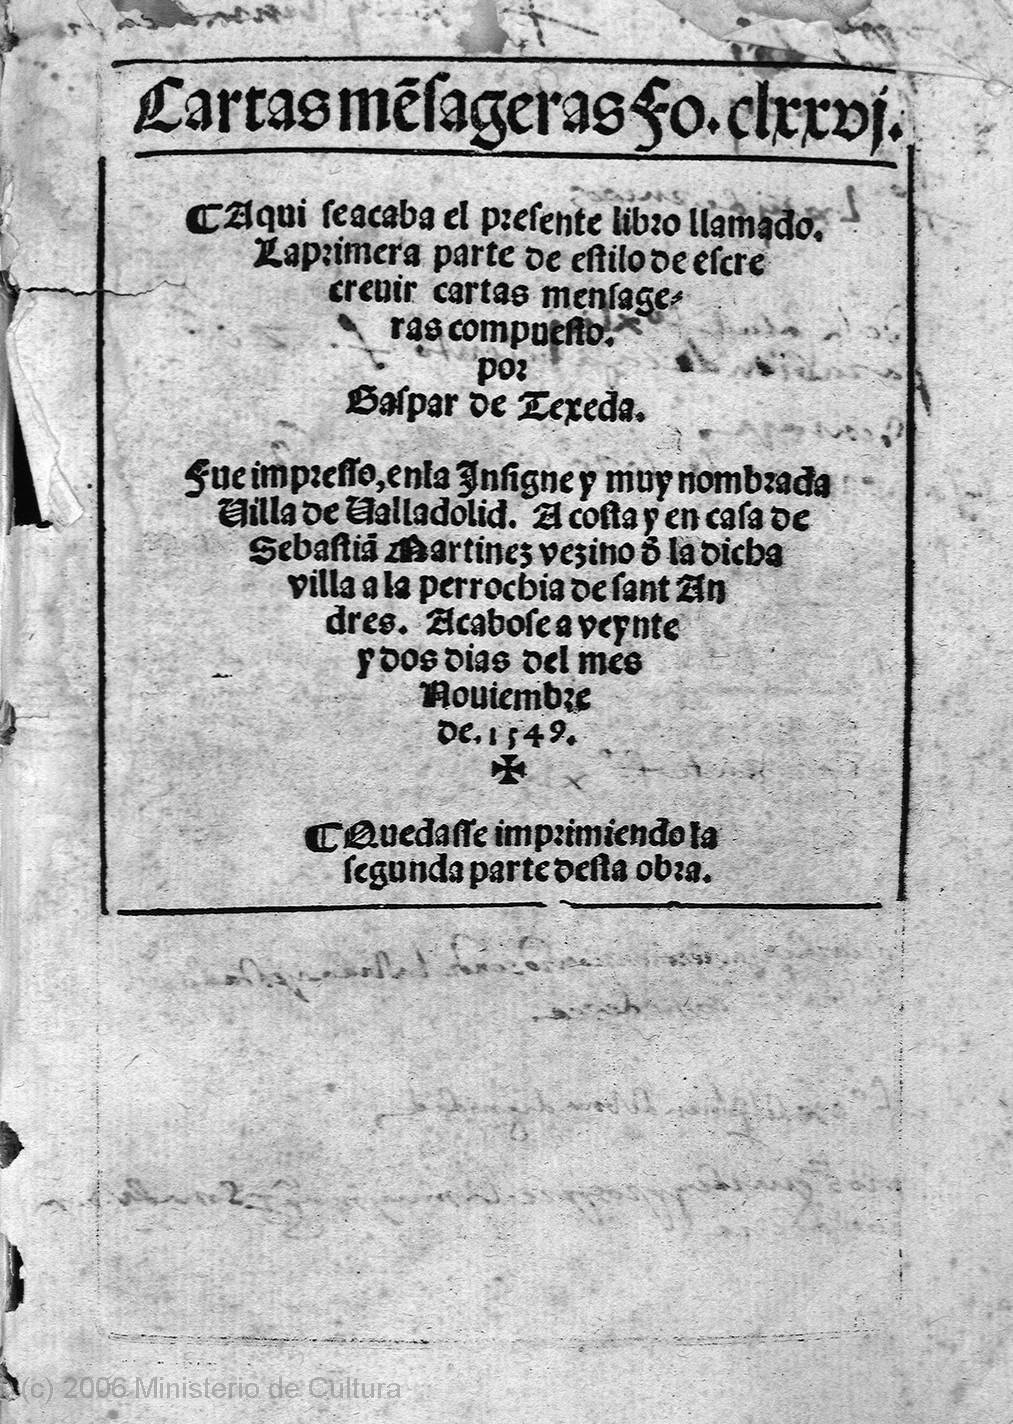 Cartas mēsageras Fo. clxxvj.
¶Aqui seacaba el presente libro llamado.
Laprimera parte de estilo de escre
creuir cartas mensage⸗
ras compuesto.
por
Gaspar de Texeda.
Fue impresso, enla Insigne y muy nombrada
Uilla de Ualladolid. A costa y en casa de
Sebastiā Martinez vezino d̄ la dicha
villa a la perrochia de sant An
dres. Acabose a veynte
y dos dias del mes
Nouiembre
de. 1549.
✠
¶Quedasse imprimiendo la
segunda parte desta obra.
(c) 2006 Ministerio de Cultura